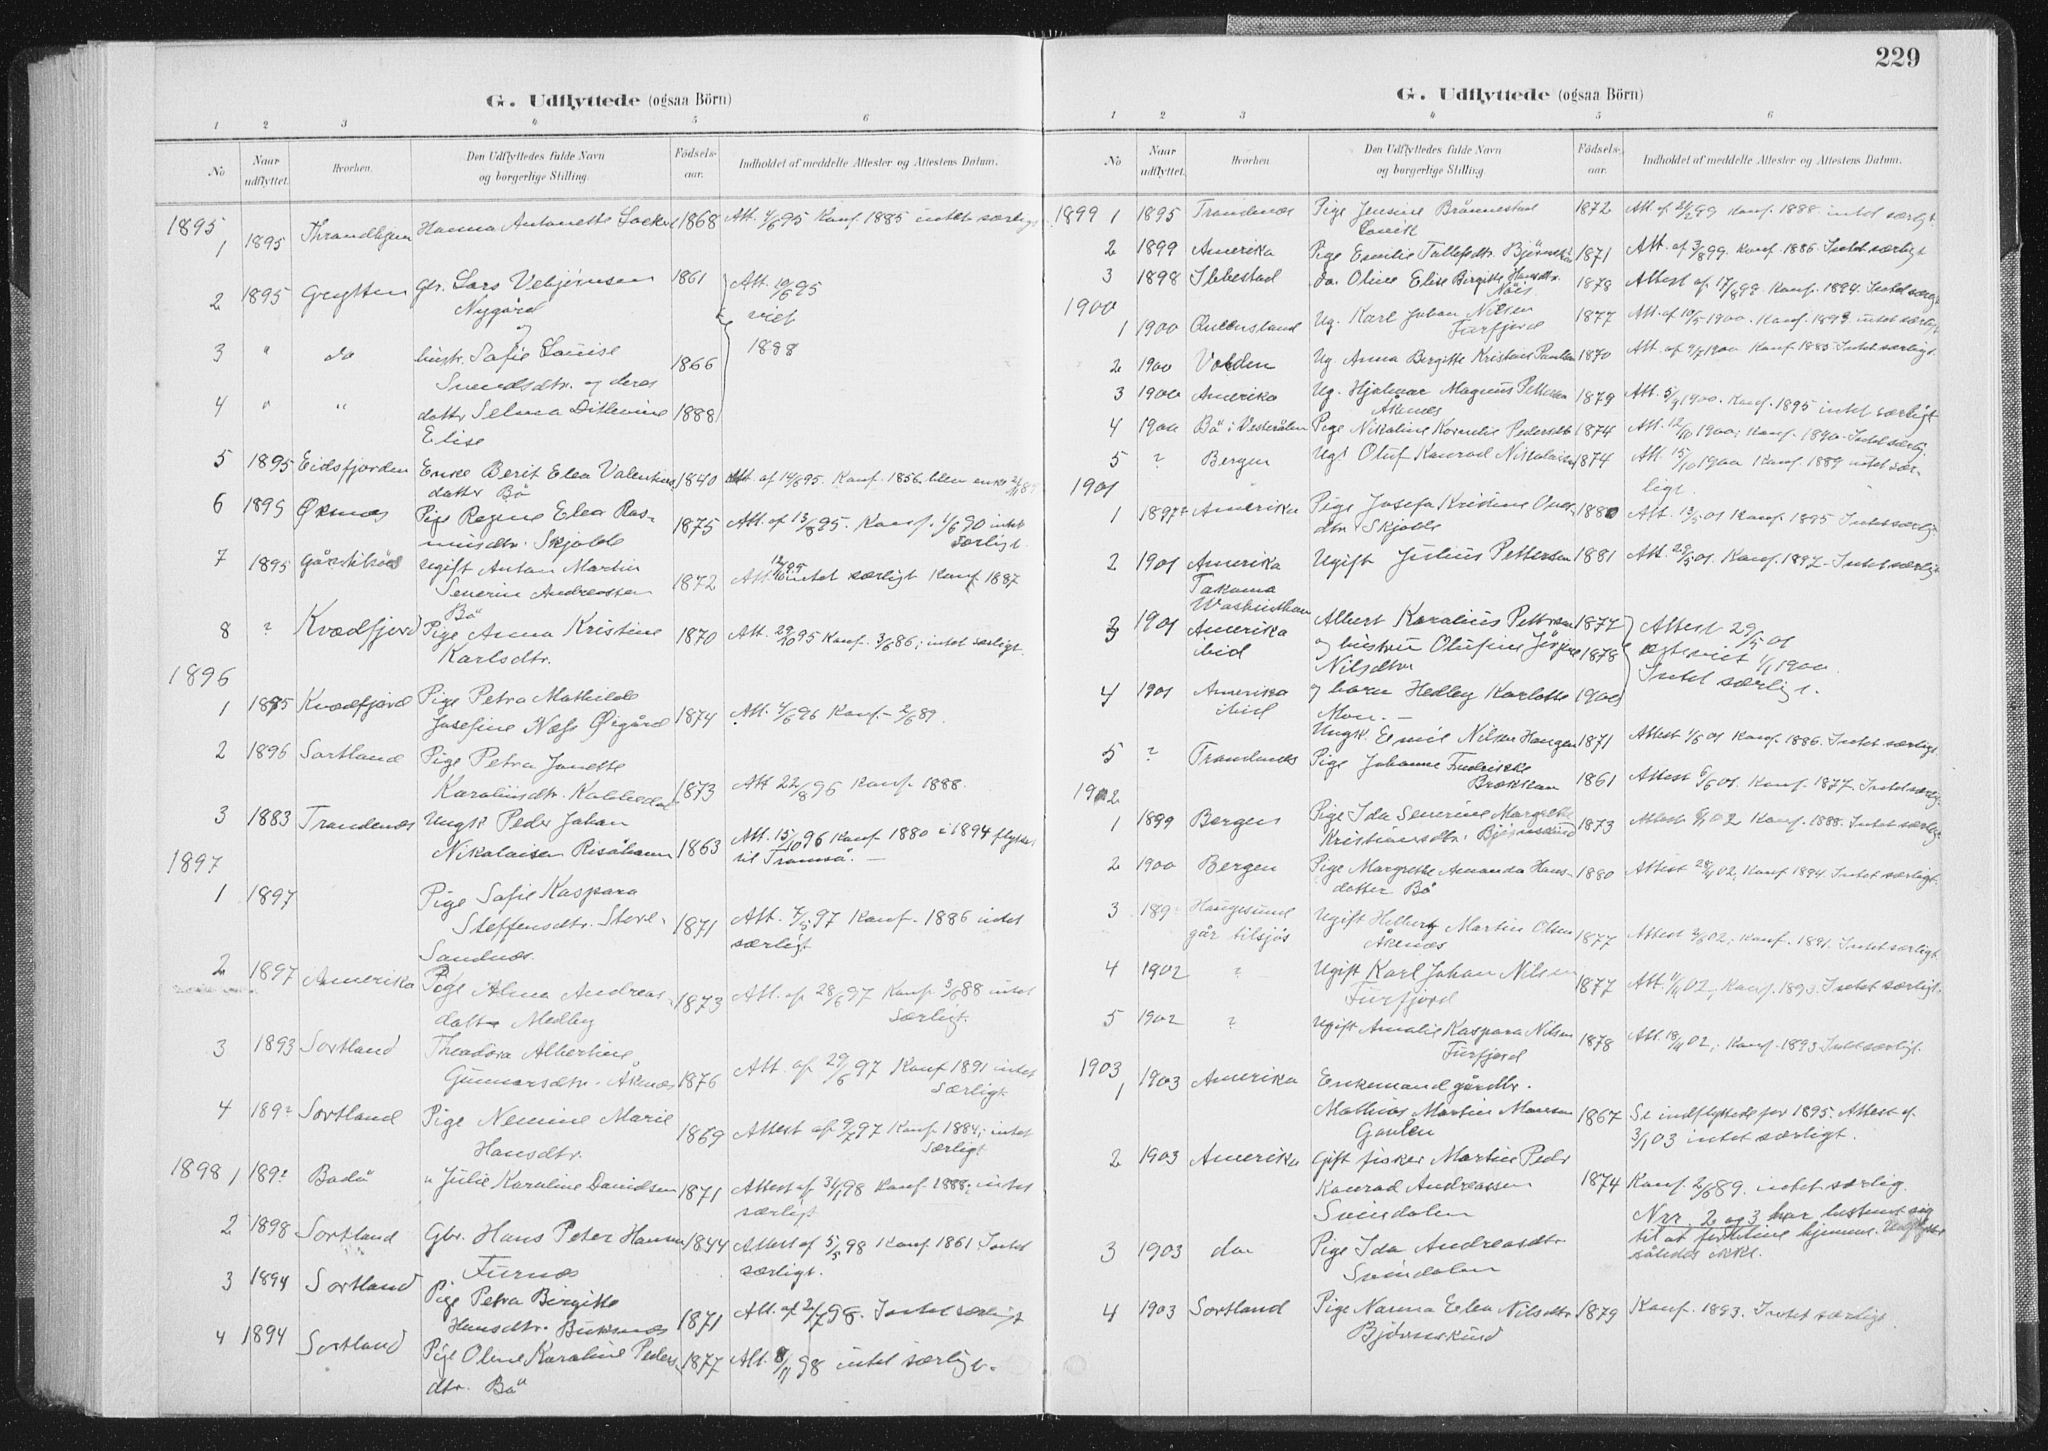 229
G. Udflyttede (ogsaa Börn)
1 2 3 4 5 6
No
Naar udflyttet.
Hvorhen.
Den Udflyttedes fulde Navn og borgerlige Stilling.
Fødsels-aar.
Indholdet af meddelte Attester og Attestens Datum.
1895
1 1895 Hanna Antonette 1868 Konf. 1885 intet særligt
2 1895 Gbr. Lars 1861 Att. 10/6 95
Nygård viet
og 1888
3 " do hustr. Sofie Louise 1866
Svendsdtr. og deres
4 " " dattr Selma Ditlevine 1888
Elise
5 1895 Eidsfjorden Enke Berit Elea Valentins 1840 Att. af 14/8 95. Konf. 1856. blev enke
datter Bö
6 1895 Øksnes Pige Regine Elea Ras- 1875 Att. af 13/8 95. Konf. 1/6 90 intet
musdtr. Skjolde særligt.
7 1895 Ugift Anton Martin
Severin Andreassen 1872 Att. intet særligt Konf. 1887
Bö
8 ? Kvædfjord Pige Anna Kristine 1870 Att. 29/10 95 Konf. 3/6 86; intet særligt.
Karlsdtr.
1896
1 1895 Kvædfjord Pige Petra Mathilde
Josefine Næss Øigård 1874 Att. 4/6 96 Konf. 2/6 89.
2 1896 Sortland Pige Petra Janette
Karoliusdtr. 1873 Att 22/8 96 Konf. 1888.
3 1883 Trondenæs Ungk. Peder Johan
Nikolaisen Risøhamn 1863 Att. 15/10 96 Konf 1880 i 1894 flyttet
til Tromsø. —
1897
1 1897 Pige Sofie Kaspara
Steffensdtr. Store- 1871 Att. 7/5 97 Konf. 1886 intet
Sandnes. særligt
2 1897 Amerika Pige Alma Andreas
datter Medby 1873 Att. af 28/6 97 Konf 3/6 88 intet
særligt.
3 1893 Sortland Theodora Albertine
Gunnarsdtr. Åknes 1876 Att. af 29/6 97 Konf 1891 intet
særligt
4 189? Sortland Pige Nemine Marie 1869 Attest af 9/7 97 Konf 1884; intet
Hansdtr. særligt
1898 1 189? Bodö " Julie Karoline Davidsen 1871 Attest af 31/1 98 Konf. 1888; intet
særligt
2 1898 Sortland Gbr. Hans Peter Hansen 1844 Attest af 5/5 98 Konf 1861 Intet
Furnæs særligt.
3 1894 Sortland Pige Petra Birgitte
Hansdtr. Buksnæs 1871 Att. af 2/7 98. Intet særligt
4 1894 Sortland Pige Oline Karoline Peders- 1877 Att. 8/11 98 intet særligt.
dtr. Bö
G. Udflyttede (ogsaa Börn)
1 2 3 4 5 6
No
Naar udflyttet.
Hvorhen
Den Udflyttedes fulde Navn og borgerlige Stilling.
Fødsels-aar.
Indholdet af meddelte Attester og Attestens Datum.
1899 1 1895 Trondenæs Pige Jensine 1872 Att. af 24/2 99 Konf. 1888. intet særligt.
2 1899 Amerika Pige Emilie 1871 Att. af 3/8 99. Konf. 1886. Intet særligt
3 1898 Ibbestad do. Oline Elise Birgitte Hansdtr. 1878 Attest af 17/8 99. Konf. 1894. Intet særligt
1900
1 1900 Ug. Karl Johan Nilsen 1877 Att. af 10/5 1900. Konf. 1893 intet særligt
Furfjord
2 1900 Volden Ug Anna Bergitte Kristine Paulsen 1870 Konf. 1885. Intet særligt.
3 1900 Amerika Ug. Hjalmar Magnus Pettersen 1879 Konf. 1895 intet særligt
Åknes
4 1900 Bö i Vesterålen Pige Nikoline Kornelie Pedersdtr. 1874 Att. 12/10 1900; Konf. 1890. Intet særlig.
5 ? Bergen Ugt Oluf Konrad Nikolaisen 1874 Att. 15/10 1900 Konf. 1889 intet sær-
ligt.
1901
1 1897? Amerika Pige Josefa Kristine 1880 Att. 13/5 01 Konf 1895 Intet særligt.
dtr. Skjolde
2 1901 Amerika Ugift Julius Pettersen 1881 Att. 29/5 01. Konf. 1897. Intet særligt
Takoma
3 1901 Amerika Albert Karolius Pettersen 1877 Attest 29/5 01
ibid og hustru Olufine 1878 ægteviet 1/1 1900.
Nilsdtr Intet særligt.
4 1901 Amerika og barn Hedley Karlotte 1900
ibid
Ungk. Emil Nilsen Haugen 1871 Attest 1/6 01 Konf. 1886. Intet særligt
5 ? Trondenæs Pige Johanne Fredrikke 1861 Attest 6/6 01. Konf. 1877. Intet særligt.
1902
1 1899 Bergen Pige Ida Severine Margrethe
Kristiansdtr. Bjørnskind 1873 Konf. 1888. Intet særligt
2 1900 Bergen Pige Margrethe Amanda Hans- 1880 Konf 1894 Intet særligt.
datter Bö
3 189? Haugesund Ugift Helberg Martin Olsen
går tilsjøs Åknæs 1877 Konf. 1891. Intet særligt
4 1902 ? Ugift Karl Johan Nilsen
Furfjord 1877 Konf. 1893. Intet særligt.
5 1902 ? Ugift Amalie Kaspara Nilsen
Furfjord 1878 Att. 18/4 02; Konf. 1893 Intet særligt.
1903
1 1903 Amerika Enkemand gårdbr.
Mathias Martin 1867 Se indflyttede for 1895. Attest af
3/1 03 intet særligt.
2 1903 Amerika Gift fisker Martin Peder
Konrad Andreassen 1874 Konf. 2/6 89. intet særlig.
Svindalen Nrr. 2 og 3 har bestemt sig
3 1903 do Pige Ida Andreasdtr til at forblive hjemme. Udflytter
Svindalen således ikke.
4 1903 Sortland Pige Norma Elea Nilsdtr 1879 Konf. 1893. Intet særligt.
Bjørnskind